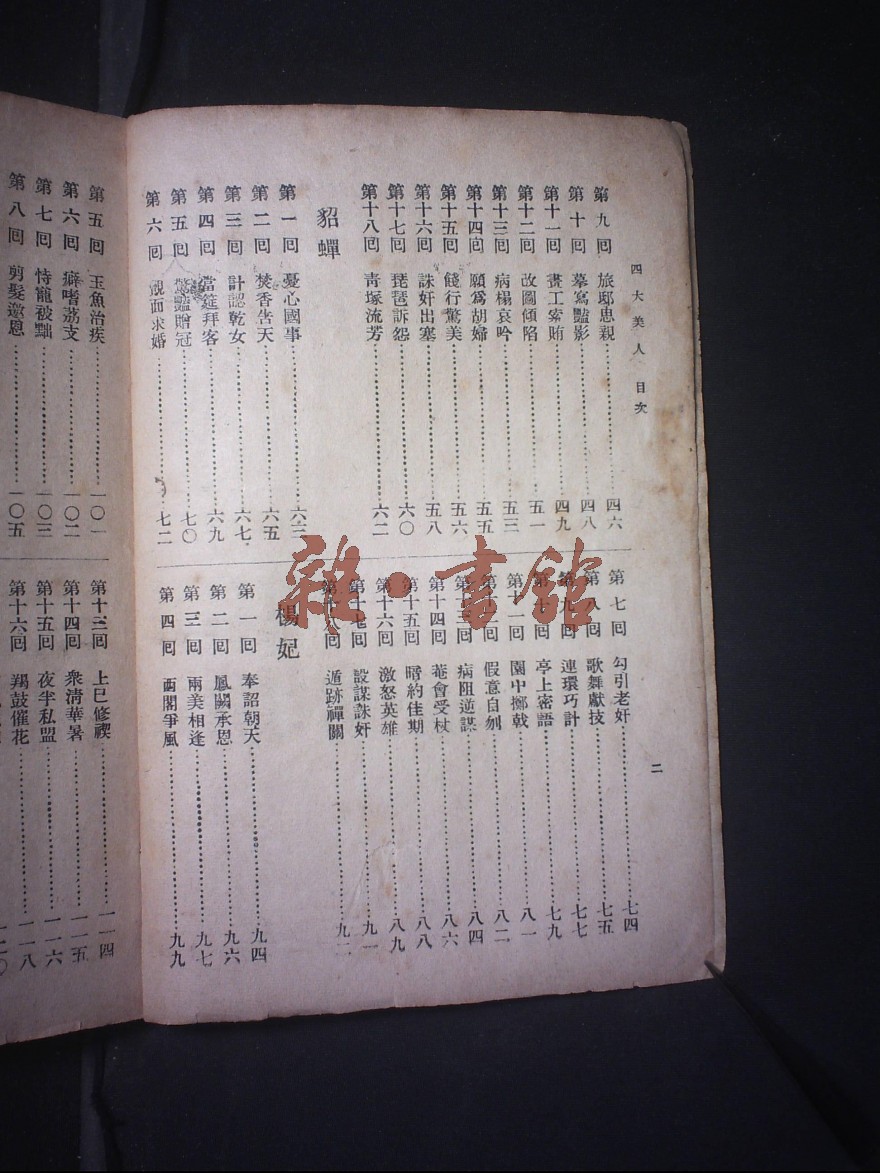 四大美人 目次
二
第九回 旅邸思親 四六
第十回 摹寫豔影 四八
第十一回 畫工索賄 四九
第十二回 改圖傾陷 五一
第十三回 病榻哀吟 五三
第十四回 願爲胡婦 五五
第十五回 餞行驚美 五六
第十六回 誅奸出塞 五八
第十七回 琵琶訴怨 六〇
第十八回 靑塚流芳 六二
貂蟬
第一回 憂心國事 六三
第二回 焚香吿天 六五
第三回 計認乾女 六七
第四回 當筵拜客 六九
第五回 驚豔贈冠 七〇
第六回 覿面求婚 七二
第七回 勾引老奸 七四
第八回 歌舞獻技 七五
第九回 連環巧計 七七
第十回 亭上密語 七九
第十一回 園中擲戟 八一
第十二回 假意自刎 八二
第十三回 病阻逆謀 八四
第十四回 菴會受杖 八六
第十五回 暗約佳期 八八
第十六回 激怒英雄 八九
第十七回 設謀誅奸 九一
第十八回 遁跡禪關 九二
楊妃
第一回 奉詔朝天 九四
第二回 鳳闕承恩 九六
第三回 兩美相逢 九七
第四回 西閣爭風 九九
第五回 玉魚治疾 一〇一
第六回 癖嗜荔支 一〇二
第七回 恃寵被黜 一〇三
第八回 剪髮邀恩 一〇五
第十三回 上巳修禊 一一四
第十四回 衆淸華暑 一一五
第十五回 夜半私盟 一一六
第十六回 羯鼓催花 一一八
一二〇
雜·書館